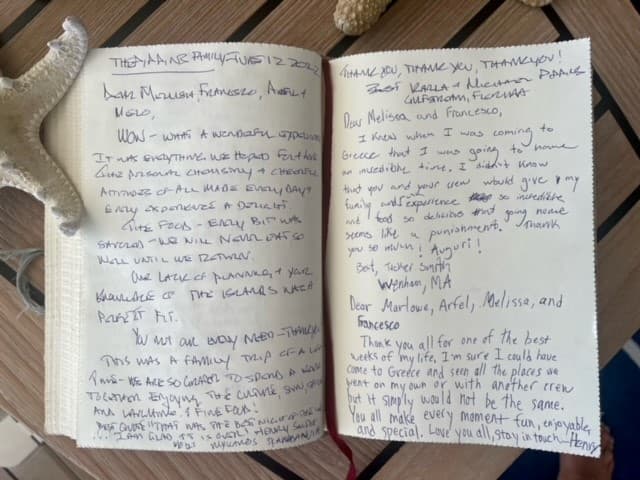 FAMILY JUNE 12 2022
DEAR MELISSA, FRANCESCO, ARFEL +
WOW - WHAT A WONDERFUL EXPERIENCE
IT WAS EVERYTHING WE HOPED FOR +
PERSONAL CHEMISTRY + CHEERFUL
ATTITUDES OF ALL MADE EVERY DAY +
EVERY EXPERIENCE A DELIGHT.
THE FOOD - EVERY BIT WAS
SAVORED - WE WILL NEVER EAT SO
WELL UNTIL WE RETURN.
OUR LACK OF PLANNING + YOUR
KNOWLEDGE OF THE ISLANDS WAS A
PERFECT FIT.
YOU MET OUR EVERY NEED - THANK YOU
THIS WAS A FAMILY TRIP OF A
TIME - WE ARE SO GRATEFUL TO SPEND A
TOGETHER ENJOYING THE CULTURE, SUN,
AND LAUGHING & FINE FOOD!
BEST QUOTE "THAT WAS THE BEST NIGHT OF
I AM GLAD IT IS OVER" HENRY
THANK YOU, THANK YOU, THANK YOU!
BEST KARLA + MICHAEL
GULFSTREAM, FLORIDA
Dear Melissa and Francesco,
I knew when I was coming to
Greece that I was going to have
an incredible time. I didn't know
that you and your crew would give my
family and experience so incredible
and food so delicious that going home
seems like a punishment. Thank
you so much! Auguri!
Best, Tucker Smith
Wenham, MA
Dear Marlowe, Arfel, Melissa, and
Francesco
Thank you all for one of the best
weeks of my life, I'm sure I could have
come to Greece and seen all the places we
went on my own or with another crew
but it simply would not be the same.
You all make every moment fun, enjoyable,
and special. Love you all, stay in touch - Henry